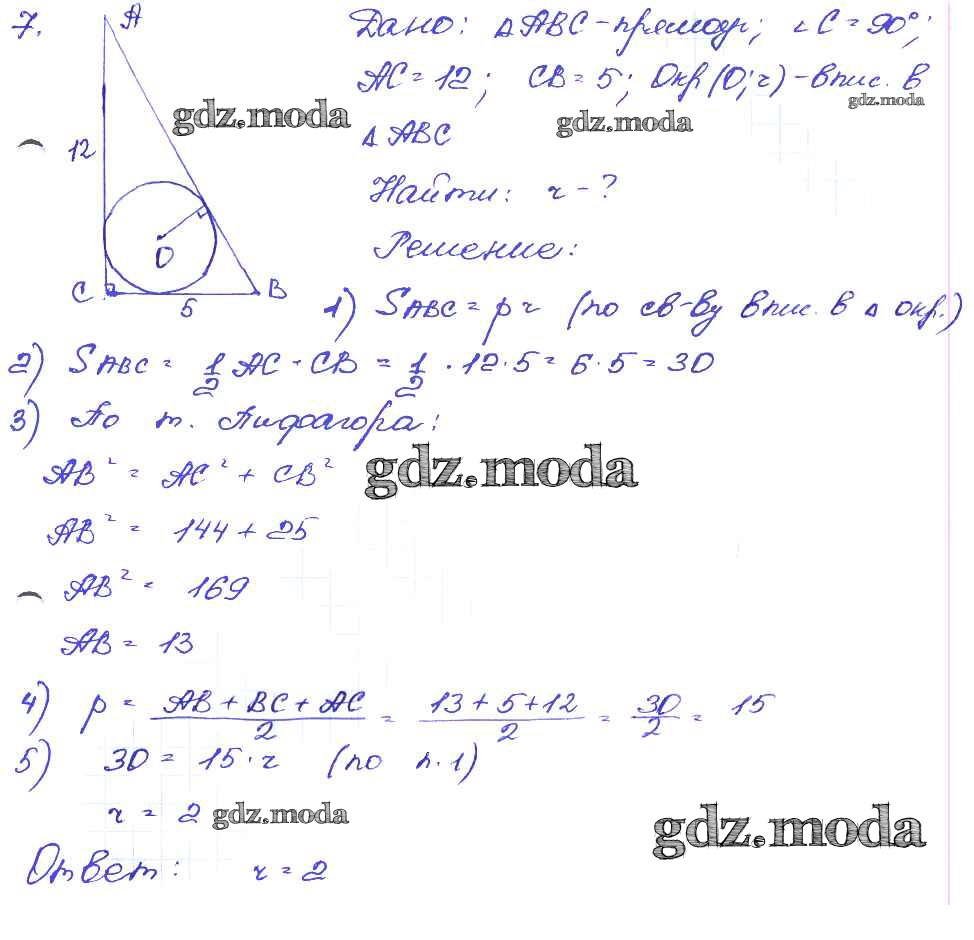 7. A Дано: △ABC - прямоуг; ∠C = 90°;
AC = 12; CB = 5; Окр(O; r) - впис. в
gdz.moda gdz.moda gdz.moda
△ABC
12
Найти: r - ?
O Решение:
C B
5
1) SABC = pr (по св-ву впис. в △ окр.)
2) SABC = 1/2 AC · CB = 1/2 · 12 · 5 = 6 · 5 = 30
3) По т. Пифагора:
AB² = AC² + CB² gdz.moda
AB² = 144 + 25
AB² = 169
AB = 13
4) p = (AB + BC + AC)/2 = (13 + 5 + 12)/2 = 30/2 = 15
5) 30 = 15 · r (по п. 1)
r = 2 gdz.moda gdz.moda
Ответ: r = 2